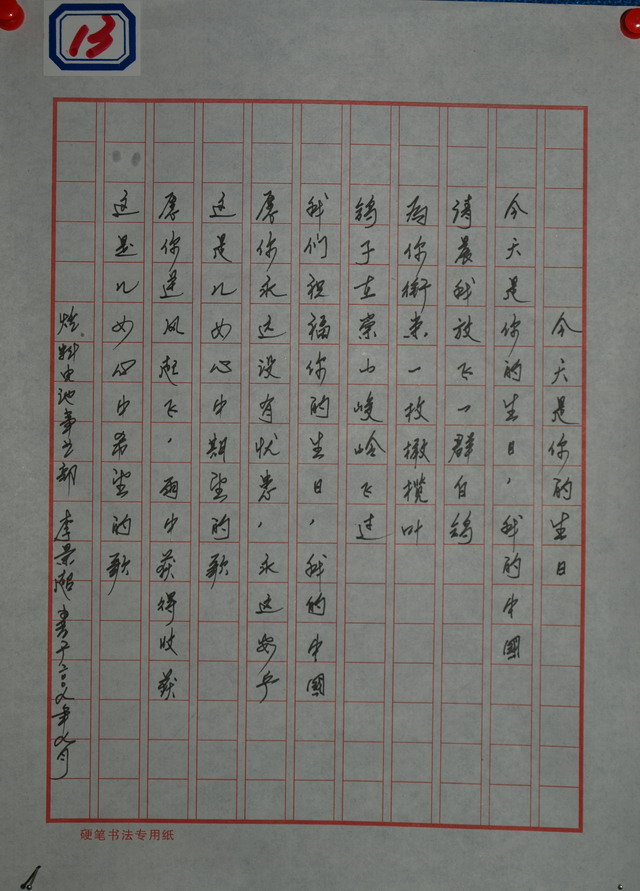 13
今天是你的生日
今天是你的生日，我的中國
清晨我放飞一群白鸽
為你衔来一枚橄榄叶
鸽子在崇山峻岭飞过
我们祝福你的生日，我的中國
愿你永远没有忧患，永远安宁
这是儿女心中期望的歌
愿你逆风起飞，雨中获得收获
这是儿女心中希望的歌
燃料电池事业部 李景超 书于二〇〇九年九月
硬笔书法专用纸